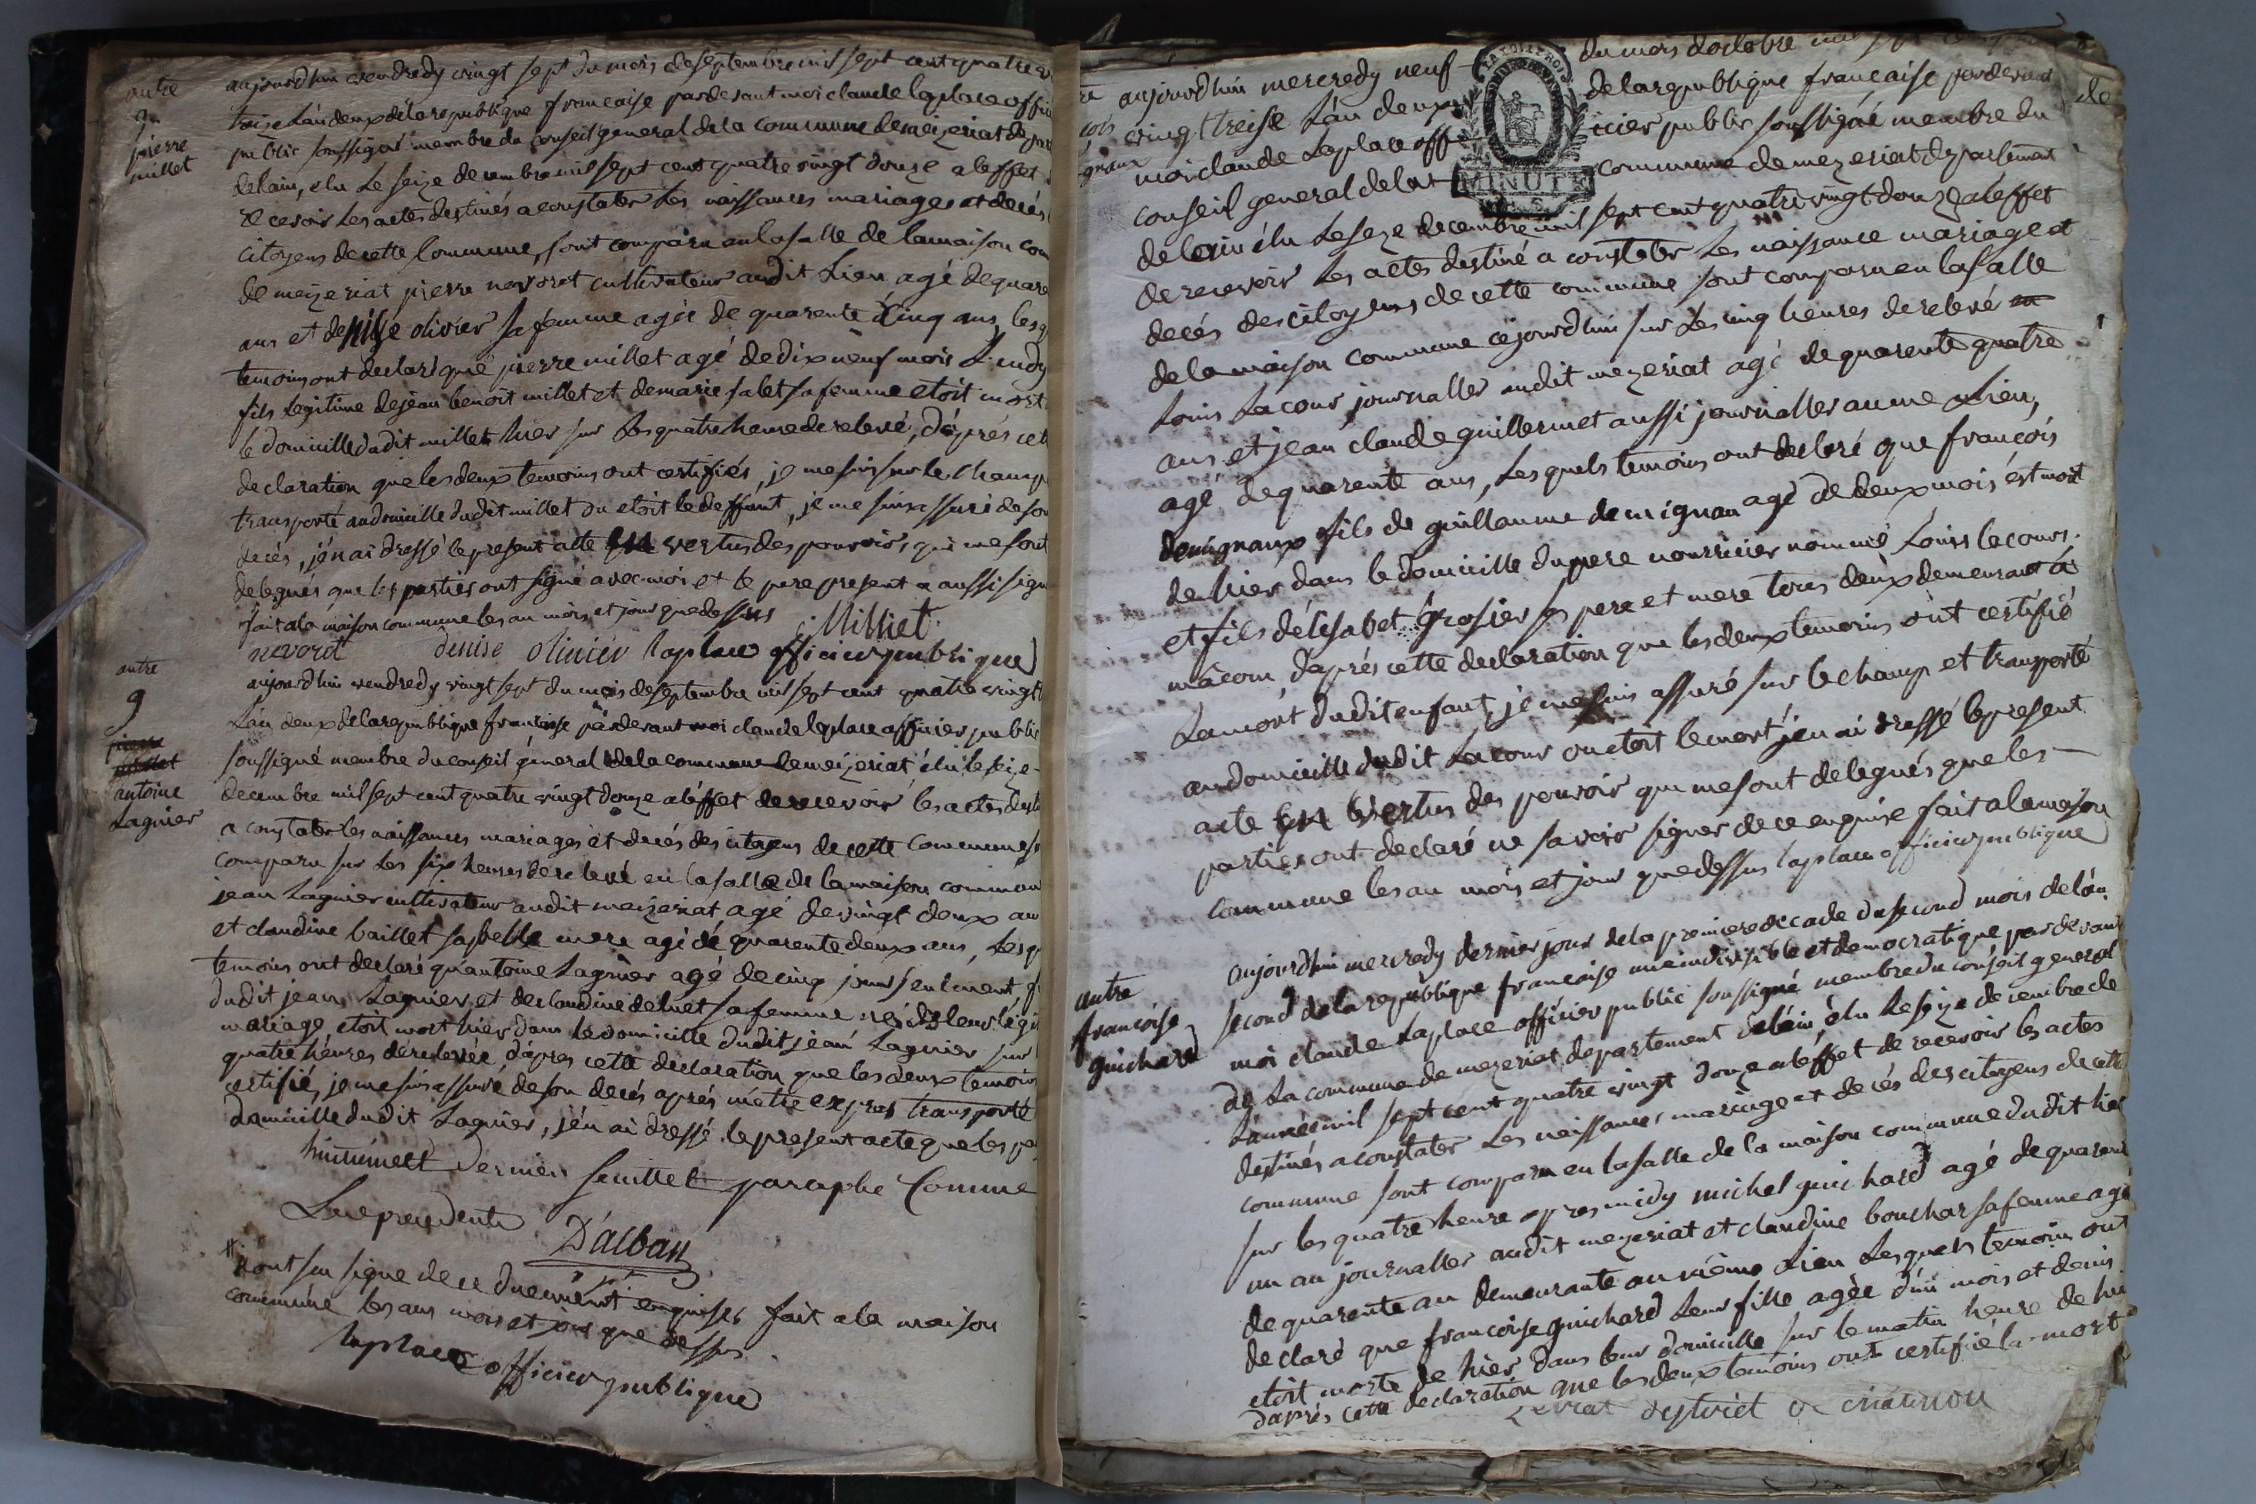 autre
9
pierre
millet
aujourdhui vendredy vingt sept du mois de septembre mil sept cent quatre v
treize L'an deux de la republique francaise pardevant moi claude laplace offic
public soussigné membre du conseil general de la commune de meizeriat depar
de lain, elu Le seize decembre mil sept cent quatre vingt douze a leffet
recevoir Les actes destinés a constater Les naissances mariages et decés
citoyens de cette Commune, sont comparu en la salle de la maison com
de meizeriat pierre nevoret cultivateur audit Lieu agé de quare
ans et denise olivier sa femme agée de quarente cinq ans, lesq
temoins ont declaré que pierre millet agé de dix neuf mois
fils Legitime de jean benoit millet et de marie salet sa femme etoit mort
le domicille dudit millet hier sur Les quatre heure de relevé, d'aprés cet
declaration que les deux temoins ont certifiés, je me suis sur le champ
transporté au domicille dudit millet ou etoit le deffunt, je me suis assuré de son
decés, j'en ai dressé le present acte en vertus des pouvoirs, qui me sont
delegués que les parties ont signé avec moi et le pere present a aussi sign
fait a la maison commune les an mois et jour que dessus Milliet
nevord denise olinier laplace officier publique
autre
9
pierre
millet
antoine
Lagnier
aujourdhui vendredy vingt sept du mois de septembre mil sept cent quatre vingt
L'an deux de la republique francoise pardevant moi claude laplace officier public
soussigné membre du conseil general de la commune de meizeriat élu le seize
decembre mil sept cent quatre vingt douze a léffet de recevoir les actes dest
a constater les naissances mariages et decés des citoyens de cette commune s
comparu sur Les six heures de relevé en la salle de la maison commun
jean Lagnier cultivateur audit meizeriat agé de vingt deux an
et claudine baillet sa belle mere agé dé quarente deux ans, Lesq
temoins ont declaré qu'antoine Lagnier agé de cinq jours seulement
dudit jean Lagnier et de claudine sa femme né de leur légi
mariage etoit mort hier dans le domicille dudit jean Lagnier sur
quatre heures de relevée, d'apres cette declaration que les deux temoins
certifié, je me suis assuré de son decés aprés metre expres transporté
domicille dudit Lagnier, j'en ai dressé le present acte que les pa
huitieme et dernier feuillet paraphé Comme
Les precedents
D'alban
n'ont su signé de ce duement enquises fait a la maison
commune les ans mois et jour que dessus
laplace officier publique
aujourdhui mercredy neuf du mois d'octobre mil
vingt treise L'an deux de la republique francaise pardevant
moi claude Laplace officier public soussigné membre du
MINUTE
conseil general de la commune de mezeriat departement
de lain élu Le seze decembre mil sept cent quatre vingt douze a leffet
de recevoir les actes destiné a constater Les naissance mariage et
decés des citoyens de cette commune sont comparu en la salle
de la maison commune cejourdhui sur Les cinq heures de relevé
Louis Lacour journallier audit mezeriat agé de quarente quatre
ans et jean claude guillermet aussi journallier au me Lieu,
agé de quarente ans, Lesquels temoins ont declaré que francois
demignaux fils de guillaume demignau agé de deux mois est mort
de hier dans le domicille du pere nourricier nommé Louis lecour
et fils d'elisabet grosier ses pere et mere tous deux demeurant á
mâcon, d'aprés cette declaration que les deux temoins ont certifié
La mort dudit enfant, je me suis assuré sur le champ et transporté
au domicille dudit Lacour ou etoit le mort j'en ai dressé le present
acte en vertus des pouvoir qui me sont delegués que les
parties ont declaré ne savoir signer de ce enquise fait a la maison
commune les an mois et jour que dessus laplace officier publique
autre
francoise
guichard
aujourdhui mercredy dernier jour de la premiere decade du second mois de l'an
second de la republique francaise une indivisible et democratique pardevant
moi claude Laplace officier public soussigné membre du conseil general
de La commune de mezeriat departement de lain élu Le seize decembre de
L'année mil sept cent quatre vingt douze a leffet de recevoir les actes
destinés a constater Les naissances mariage et decés des citoyens de cette
commune sont comparu en la salle de la maison commune dudit lieu
sur les quatre heure apres midy michel guichard agé de quarante
un an journallier audit mezeriat et claudine bouchar sa femme agé
de quarente an demeurante au même Lieu Lesquels temoin ont
declaré que francoise guichard Leur fille agée d'un mois et demis
etoit morte de hier dans leur domicille sur le matin heure de hui
d'aprés cette declaration que les deux temoins ont certifié la mort
district de chatillon